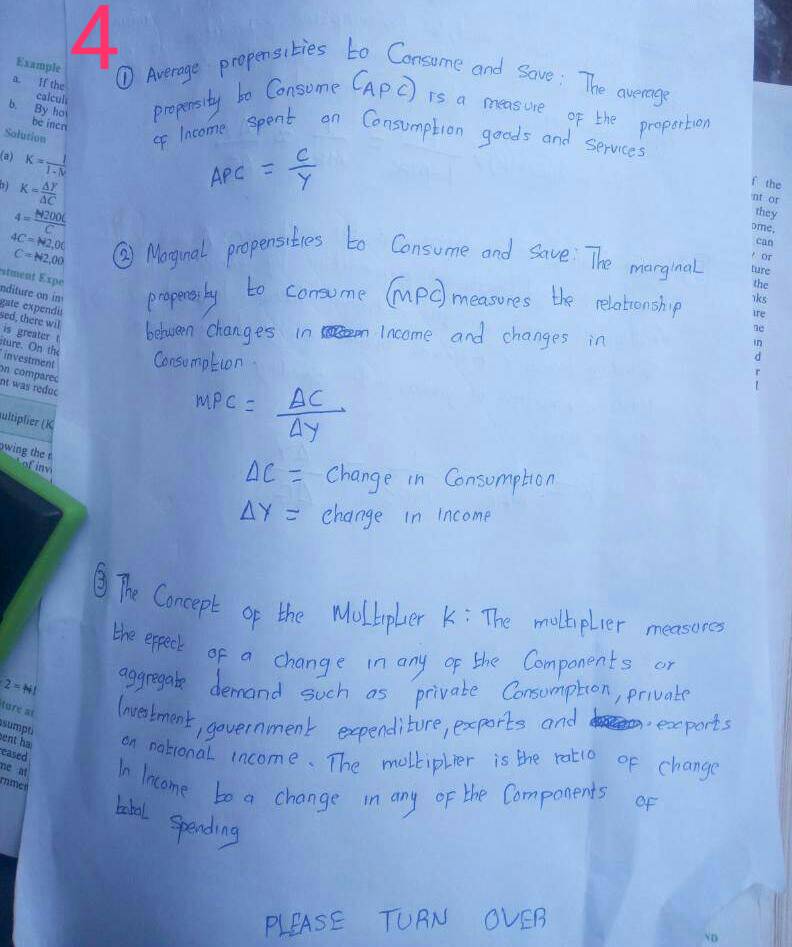 4
① Average propensities to Consume and Save: The average
propensity to Consume (APC) is a measure of the proportion
of Income spent on Consumption goods and services
APC = C/Y
② Marginal propensities to Consume and Save: The marginal
propensity to consume (MPC) measures the relationship
between changes in Income and changes in
Consumption.
MPC = ΔC/ΔY
ΔC = Change in Consumption
ΔY = change in Income
③ The Concept of the Multiplier K: The multiplier measures
the effect of a change in any of the Components or
aggregate demand such as private Consumption, private
Investment, government expenditure, exports and exports
on national income. The multiplier is the ratio of change
In Income to a change in any of the Components of
total Spending
PLEASE TURN OVER
Example
a. If the
b. By
Solution
(a) K =
b) K = ΔY/ΔC
4 = ₦2000/C
4C = ₦2,00
C = ₦2,00
is greater
investment
ultiplier (K
owing the
of inv
2 = ₦
f the
nt or
they
ome,
can
or
ture
the